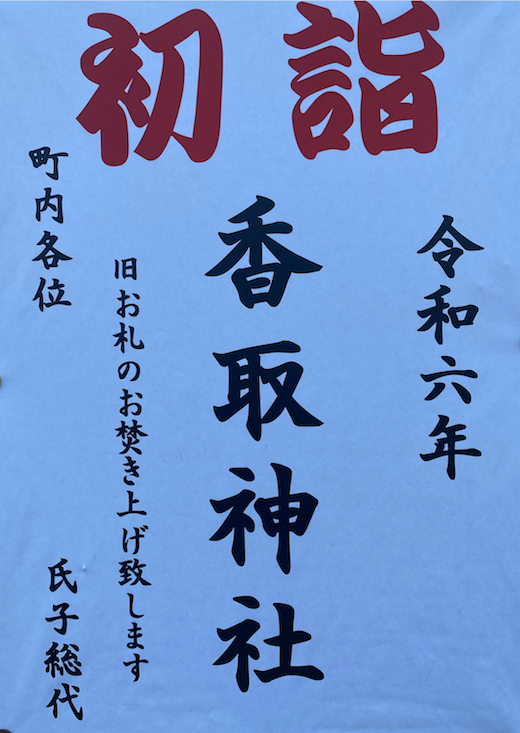 初詣
令和六年
香取神社
旧お札のお焚き上げ致します
町内各位
氏子総代